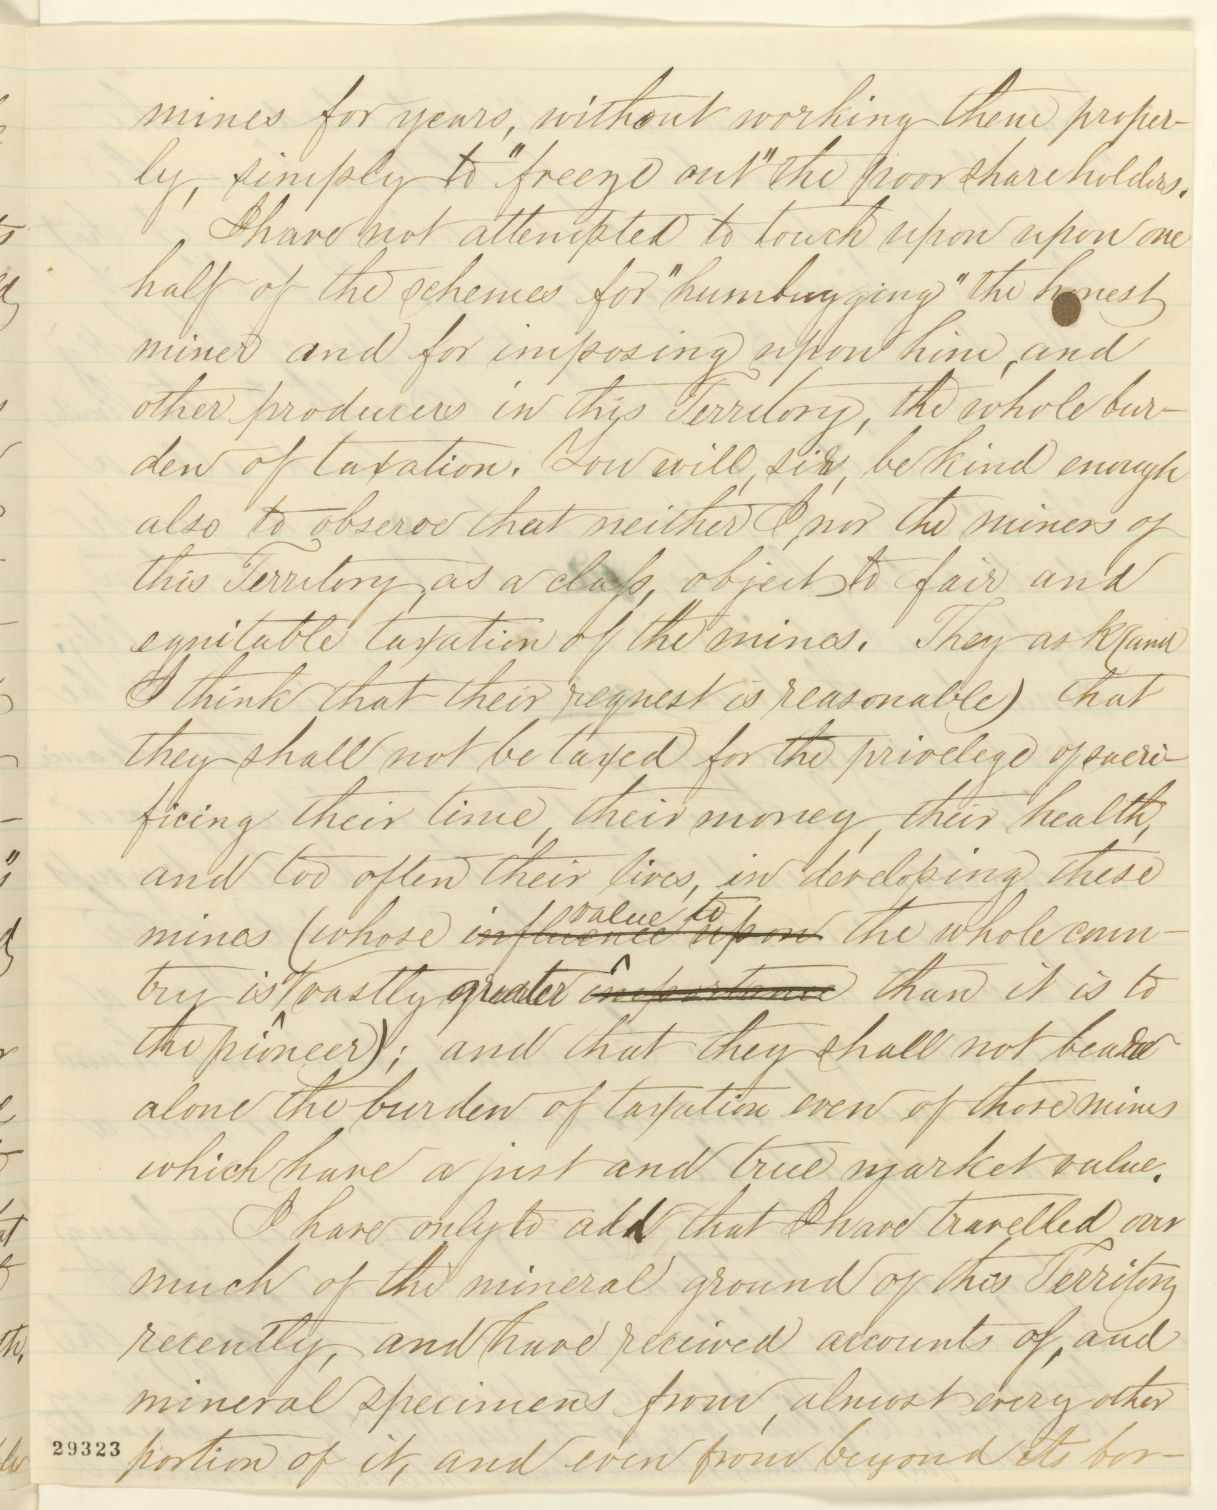 mines for years, without working them proper-
ly, simply to "freeze out" the poor shareholders.
I have not attempted to touch upon upon one
half of the schemes for "humbugging" the honest
miner and for imposing upon him, and
other producers in this Territory, the whole bur-
den of taxation. You will, sir, be kind enough
also to observe that neither I, nor the miners of
this Territory, as a class, object to fair and
equitable taxation of the mines. They ask (and
I think that their request is reasonable) that
they shall not be taxed for the privelege of sacri-
ficing their time, their money, their health,
and too often their lives, in developing these
value to
mines (whose influence upon the whole coun-
try is vastly greater importance than it is to
the pioneer); and that they shall not bear
alone the burden of taxation even of those mines
which have a just and true market value.
I have only to add, that I have travelled over
much of the mineral ground of this Territory
recently, and have received accounts of, and
mineral specimens from, almost every other
29323 portion of it, and even from beyond its bor-